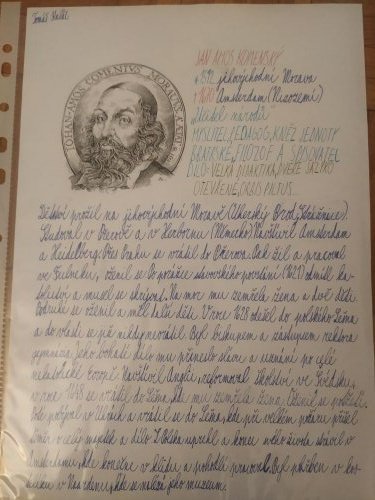 Tomáš
IOHAN-AMOS COMENIVS, MORAVVS. A° ÆTAT
JAN AMOS KOMENSKÝ
* 1592 jihovýchodní Morava
† 1670 Amsterdam (Nizozemí)
"Učitel národů"
MYSLITEL, PEDAGOG, KNĚZ JEDNOTY
BRATRSKÉ, FILOZOF A SPISOVATEL
DÍLO: VELKÁ DIDAKTIKA, DVEŘE JAZYKŮ
OTEVŘENÉ, ORBIS PICTUS...
Dětství prožil na jihovýchodní Moravě (Uherský Brod, Strážnice).
Studoval v Přerově a v Herbornu (Německo). Navštívil Amsterdam
a Heidelberg. Přes Prahu se vrátil do Přerova. Pak žil a pracoval
ve Fulneku, oženil se. Po porážce stavovského povstání (1621) odmítl ka-
tolictví a musel se skrývat. Na mor mu zemřela žena a dvě děti.
Podruhé se oženil a měl další děti. V roce 1628 odešel do polského Lešna
a do vlasti se již nikdy nevrátil. Byl biskupem a zástupcem rektora
gymnázia, jeho bohaté dílo mu přineslo slávu a uznání po celé
nekatolické Evropě. Navštívil Anglii, reformoval školství ve Švédsku,
v roce 1648 se vrátil do Lešna, kde mu zemřela žena. Oženil se potřetí.
poté v Uhrách a vrátil se do Lešna, kde při velkém požáru přišel
téměř o celý majetek a dílo. Z Polska uprchl a konec svého života strávil v
Amsterdamu, kde konečně v klidu a pohodlí pracoval. Byl pohřben v kos-
telíku v Naardenu, kde se nalézá jeho muzeum.